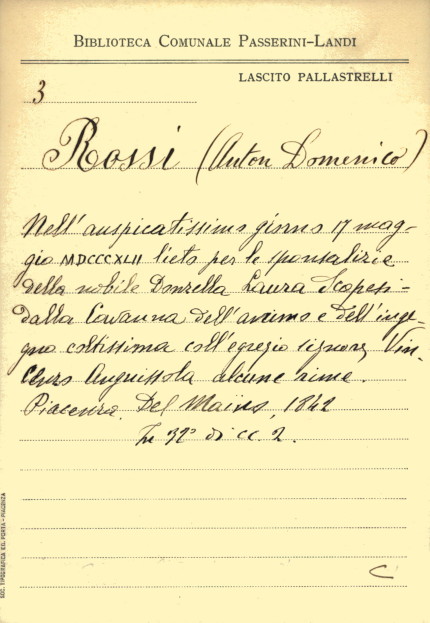 BIBLIOTECA COMUNALE PASSERINI-LANDI
LASCITO PALLASTRELLI
3
Rossi (Anton Domenico)
Nell' auspicatissimo giorno 17 mag-
gio MDCCCXLII lieto per le sponsalizie
della nobile Donzella Laura Scopesi-
dalla Cavanna dell'animo e dell'inge-
gno coltissima coll'egregio signore Vin-
cenzo Anguissola alcune rime.
Piacenza. Del Maino, 1842
In 32° di cc. 2.
C
SOC. TIPOGRAFICA ED. PORTA - PIACENZA